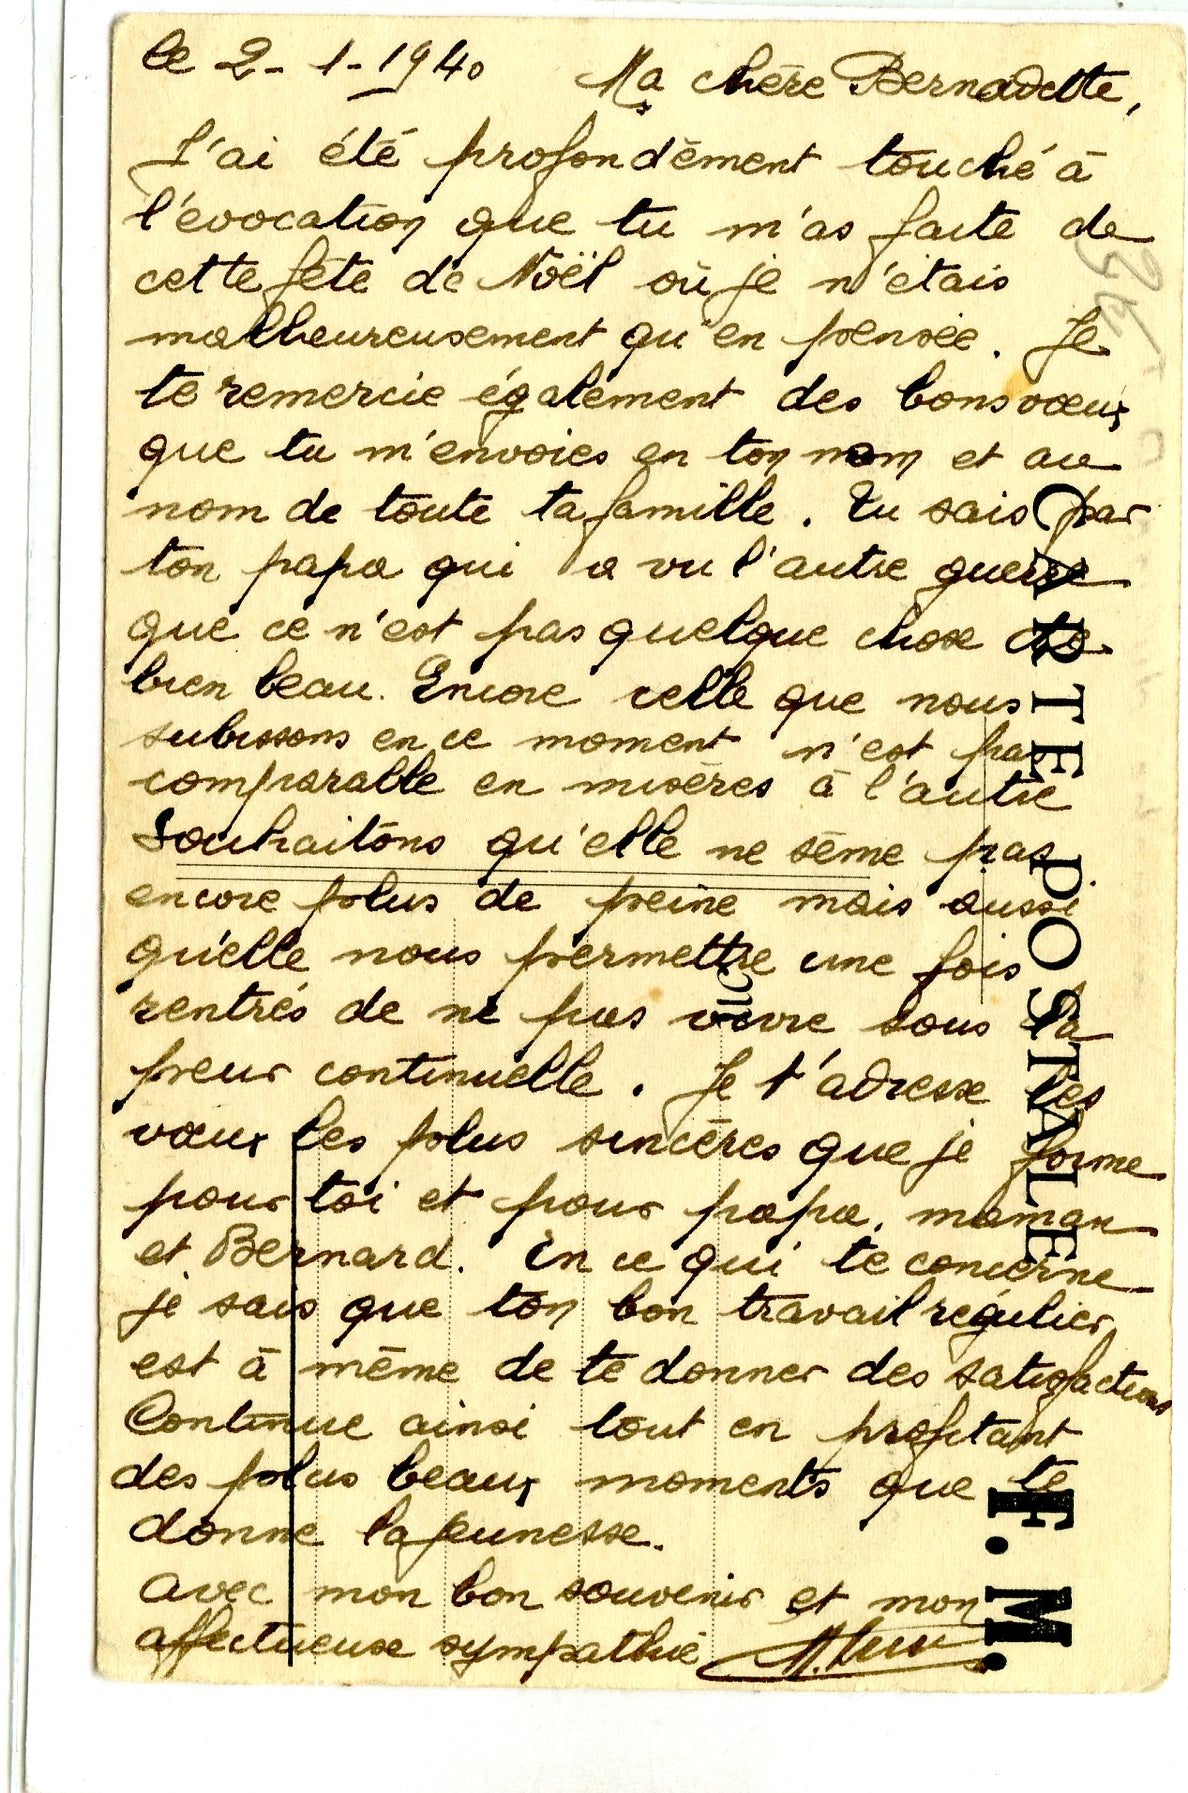 le 2-1-1940
Ma chère Bernadette,
J'ai été profondément touché à
l'évocation que tu m'as faite de
cette fête de Noël où je n'étais
malheureusement qu'en pensée. Je
te remercie également des bons vœux
que tu m'envoies en ton nom et au
nom de toute ta famille. Tu sais par
ton papa qui a vu l'autre guerre
que ce n'est pas quelque chose de
bien beau. Encore celle que nous
subissons en ce moment n'est pas
comparable en misères à l'autre
Souhaitons qu'elle ne sème pas
encore plus de peine mais aussi
qu'elle nous permettre une fois
rentrés de ne pas vivre sous la
peur continuelle. Je t'adresse les
vœux les plus sincères que je forme
pour toi et pour papa, maman
et Bernard. En ce qui te concerne
je sais que ton bon travail régulier
est à même de te donner des satisfactions
Continue ainsi tout en profitant
des plus beaux moments que te
donne la jeunesse.
Avec mon bon souvenir et mon
affectueuse sympathie
CARTE POSTALE
F. M.